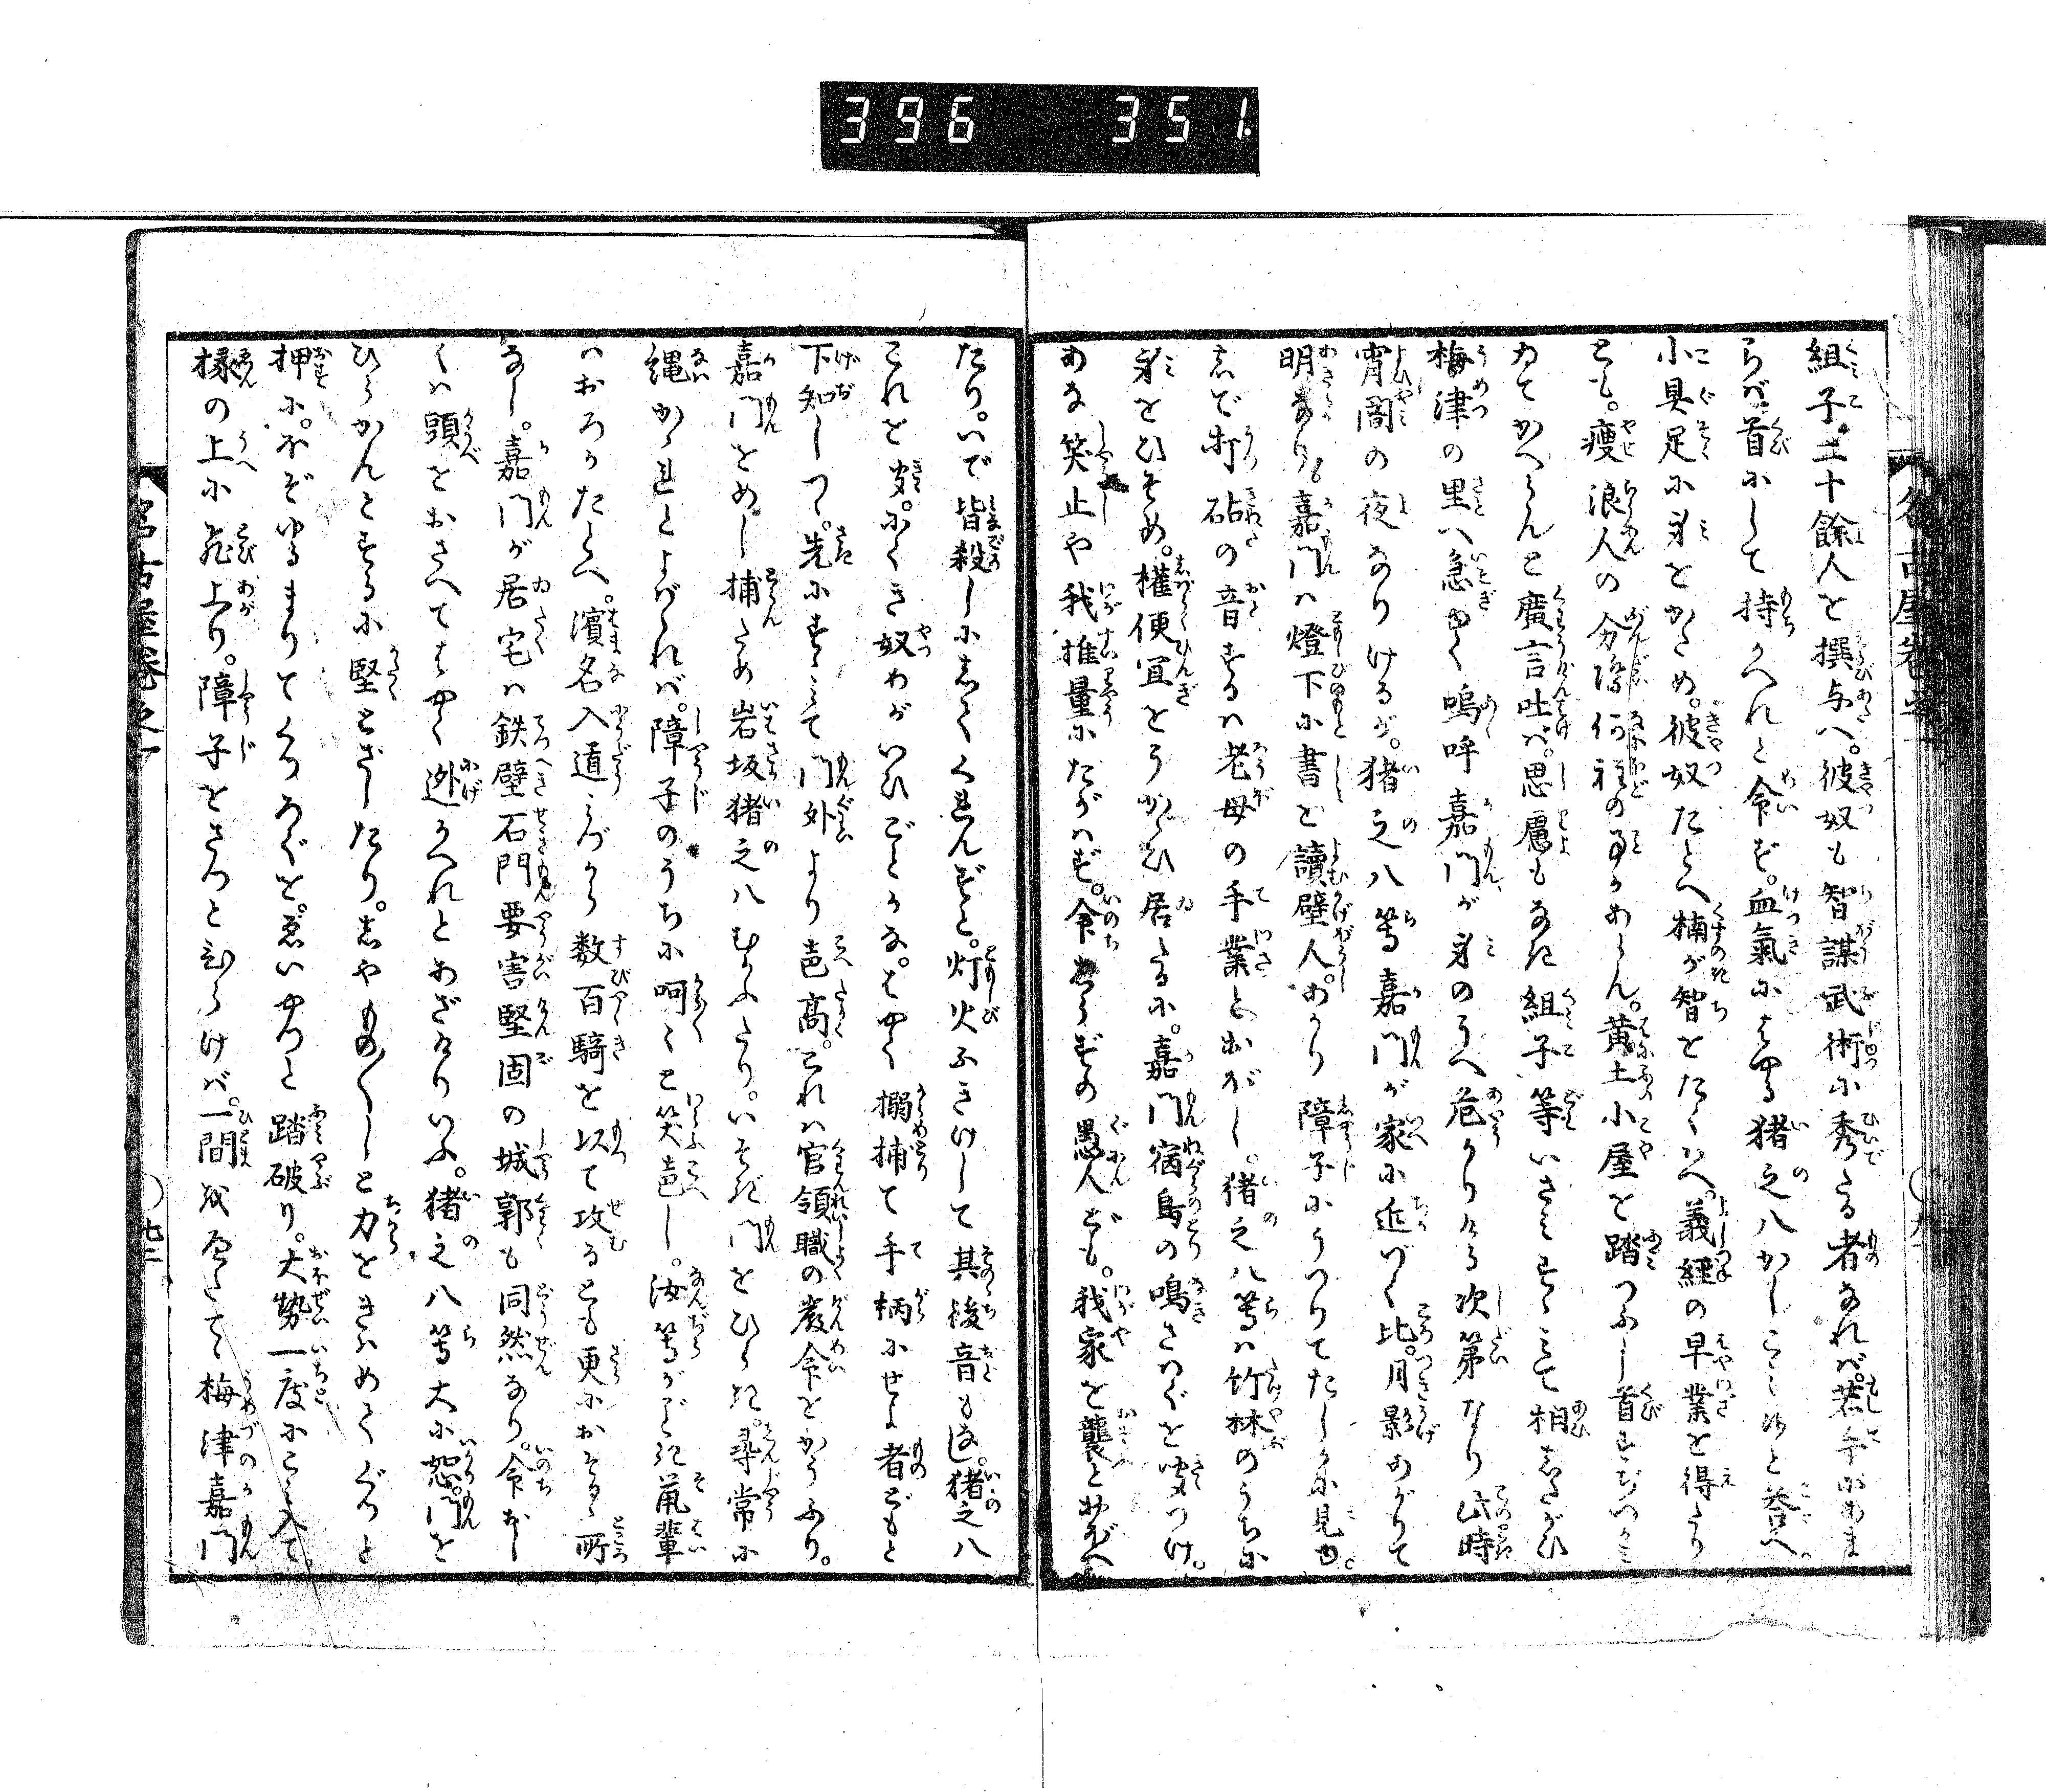 396 351.
組子三十餘人を撰与へ。彼奴も智謀武術に秀たる者なれば。若手にあま
らば首にして持かへれと令ず。血氣にはやる猪之八かしこみ候と答へ
小具足に身をかため。彼奴たとへ楠が智をたくはへ。義經の早業を得たり
とも。瘦浪人の分際何程の事かあらん。黄土小屋を踏つぶし首ずばつかみ
ゐてかへらんと廣言吐ば。思慮もなき組子等いさみすゝみて相したがひ
梅津の里へ急ゆく嗚呼嘉門が身のうへ危かりける次第なり此時
宵闇の夜なりけるが。猪之八等嘉門が家に近づく比。月影あがりて
明なり。嘉門は燈下に書を讀壁人。あかり障子にうつりてたしかに見ゆ。
しで打砧の音するは老母の手業とおぼし。猪之八等は竹林のうちに
身をひそめ。權便宜をうかゞひ居たるに。嘉門宿鳥の鳴さわぐを聞つけ。
あな笑止や我推量にたがはず。命しらずの愚人ども。我家を襲とおぼへ
たり。いで皆殺しにしてくれんずと。灯火ふきけして其後音もせず。猪之八
これを聞。にくき奴めがいひごとかな。はやく搦捕て手柄にせよ者どもと
下知しつ。先にすゝみて門外より声高。これは官領職の嚴命をかうふり。
嘉門をめし捕ため岩坂猪之八むかふたり。いそぎ門をひらき。尋常に
縄かゝれとよばゝれば。障子のうちに呵〻と笑声し。汝等がごとき鼠輩
はおろかたとへ。濱名入道みづから数百騎を以て攻るとも更におそるゝ所
なし。嘉門が居宅は鉄壁石門要害堅固の城郭も同然なり。命おし
くは頭をおさへてはやく迯かへれとあざけりいふ。猪之八等大に怒。門を
ひらかんとするに堅とざしたり。しやものものしと力をきはめてぐつと
押に。なぞゆるまりてくつろぐを。ゑいやつと踏破り。大勢一度にこみ入て。
椽の上に飛上り。障子をさつとひらけば。一間をへだてゝ梅津嘉門